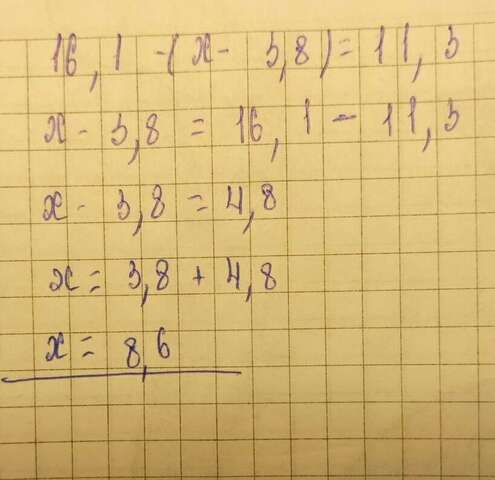 16,1 - (x - 3,8) = 11,3
x - 3,8 = 16,1 - 11,3
x - 3,8 = 4,8
x = 3,8 + 4,8
x = 8,6